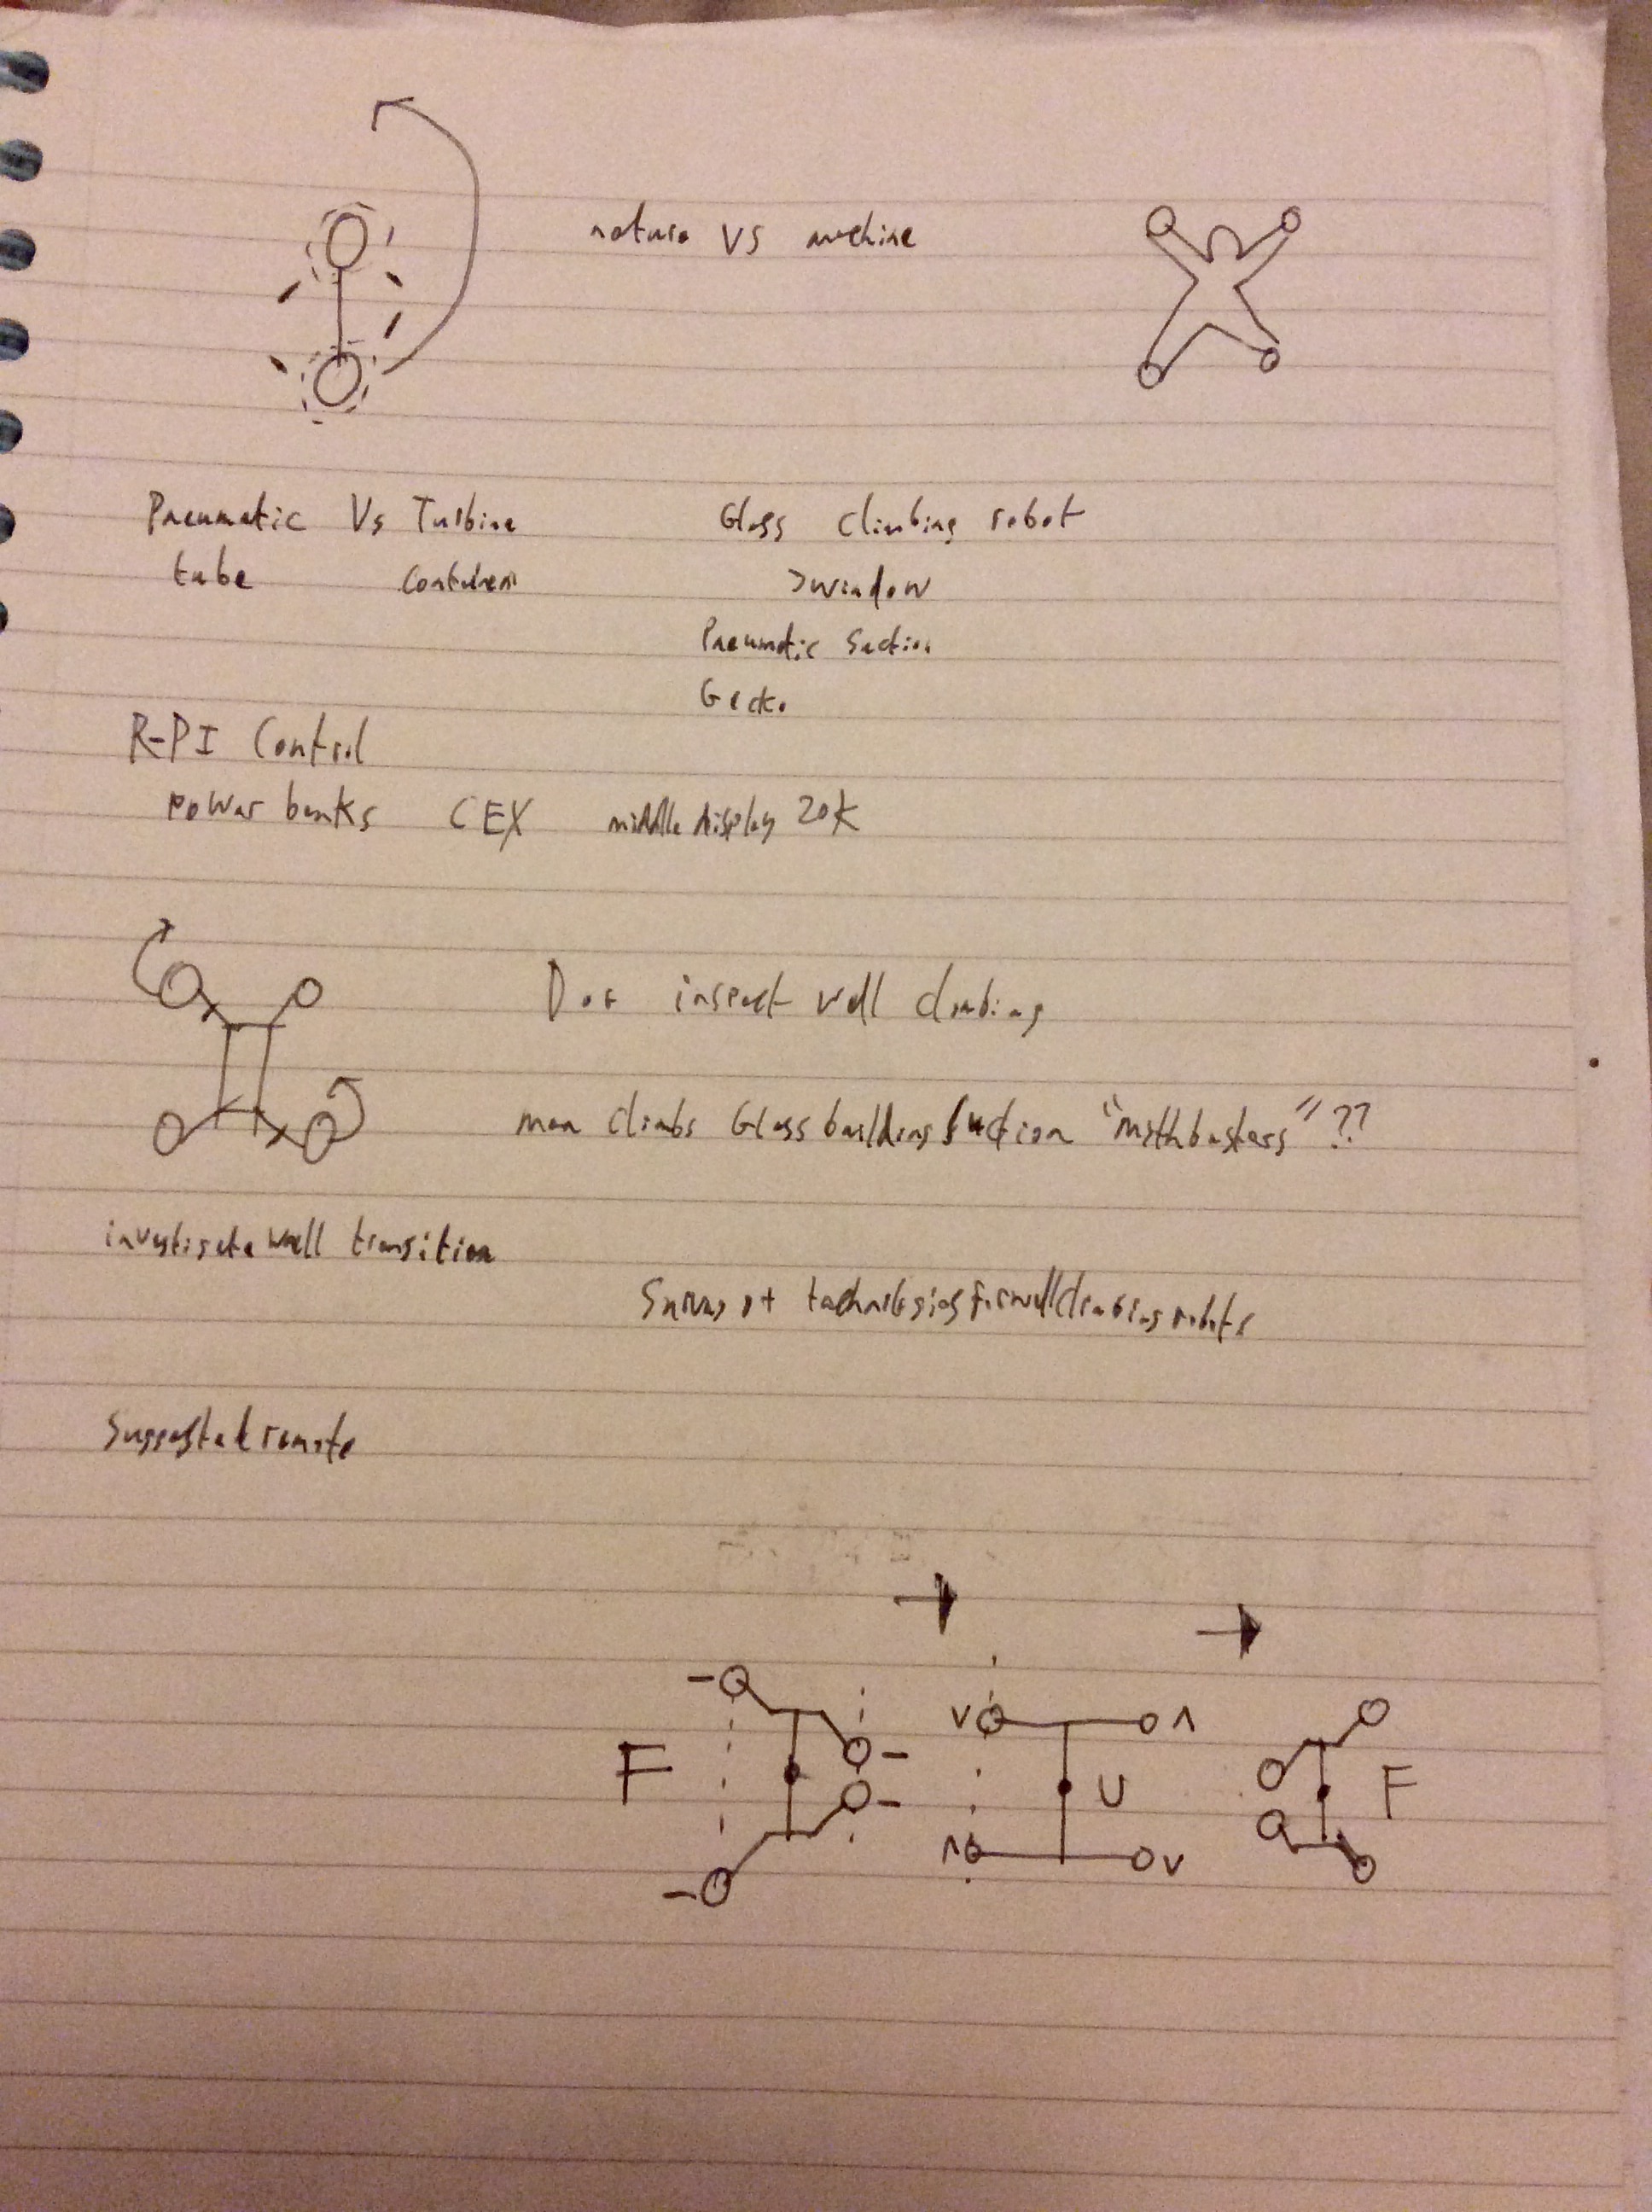 nature VS machine
Pneumatic Vs Turbine
tube
Glass climbing robot
>window
Pneumatic Suction
Gecko
R-PI Control
Power banks CEX middle display 20K
inspect wall climbing
man climbs Glass building suction "mythbusters" ??
investigate wall transition
Survey of technologies for wall climbing robots
Suggested remote
F
V Λ
U
Λ V
F